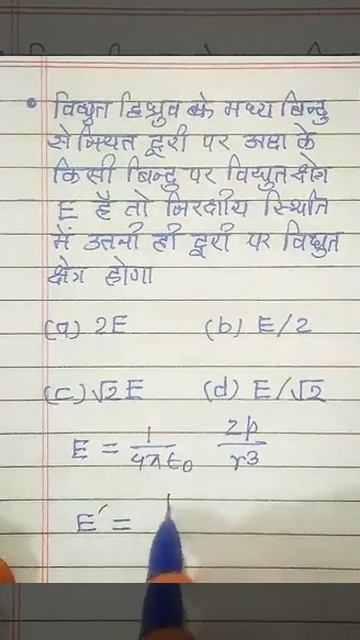 • विद्युत द्विध्रुव के मध्य बिन्दु
से स्थित दूरी पर अक्ष के
किसी बिन्दु पर विद्युत क्षेत्र
E है तो निरक्षीय स्थिति
में उतनी ही दूरी पर विद्युत
क्षेत्र होगा
(a) 2E (b) E/2
(c) √2 E (d) E/√2
E = 1/4πε₀ 2p/r³
E′ =